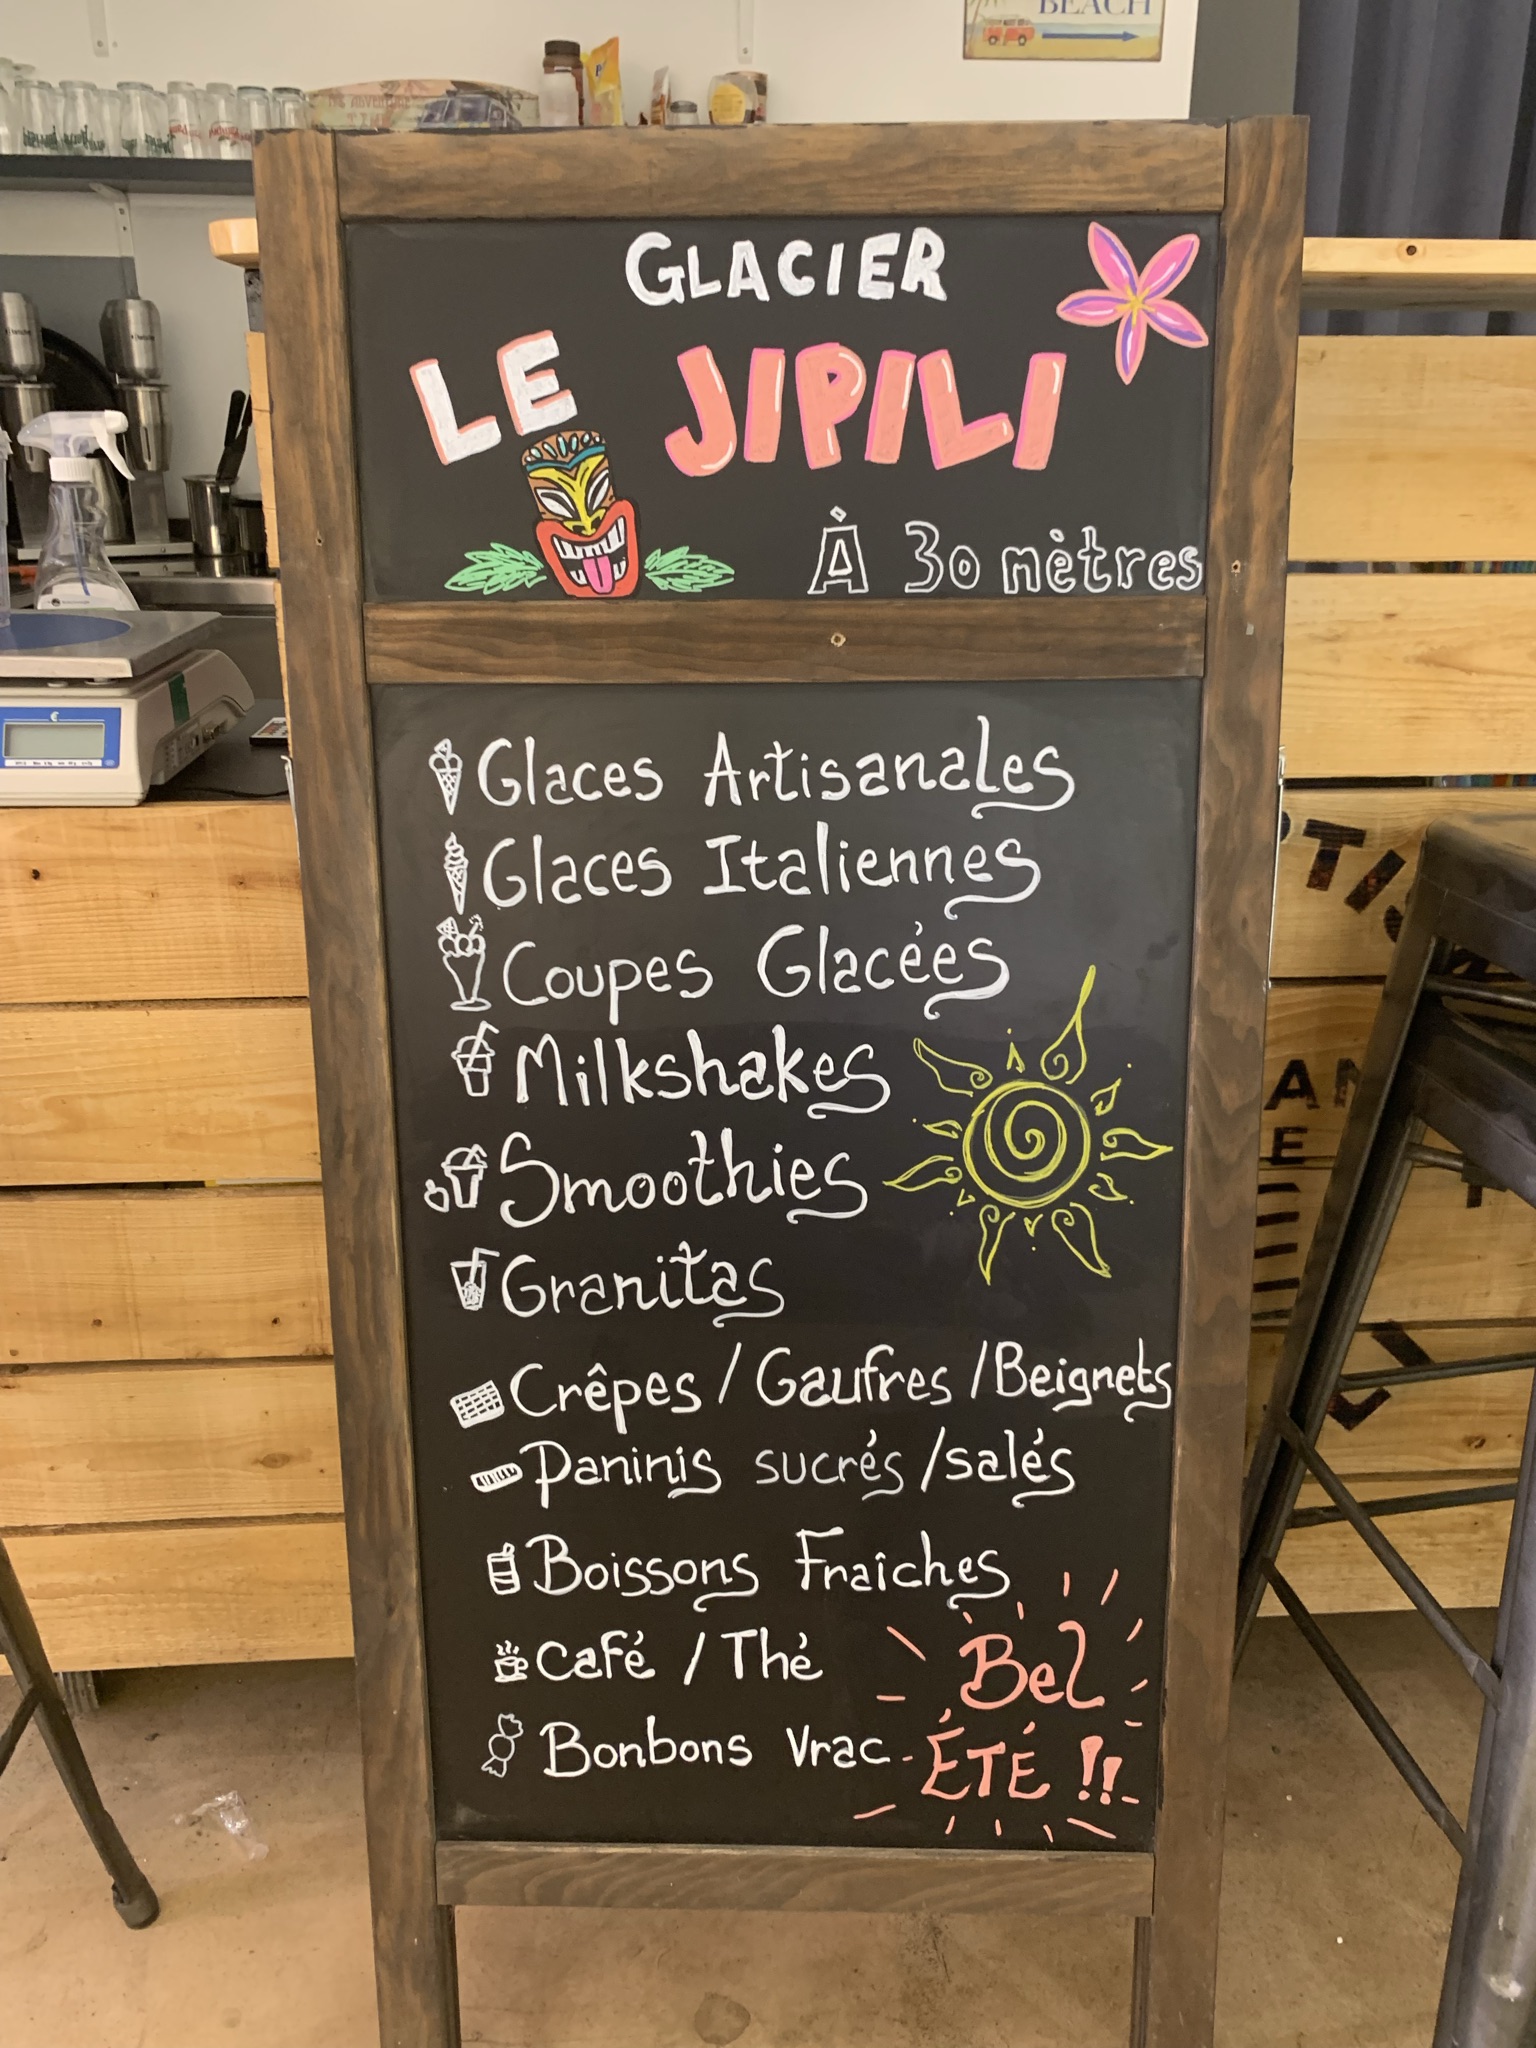 BEACH
GLACIER
LE JIPILI
À 30 mètres
Glaces Artisanales
Glaces Italiennes
Coupes Glacées
Milkshakes
Smoothies
Granitas
Crêpes / Gaufres / Beignets
Paninis sucrés / salés
Boissons Fraîches
Café / Thé
Bonbons Vrac
Bel
ÉTÉ !!